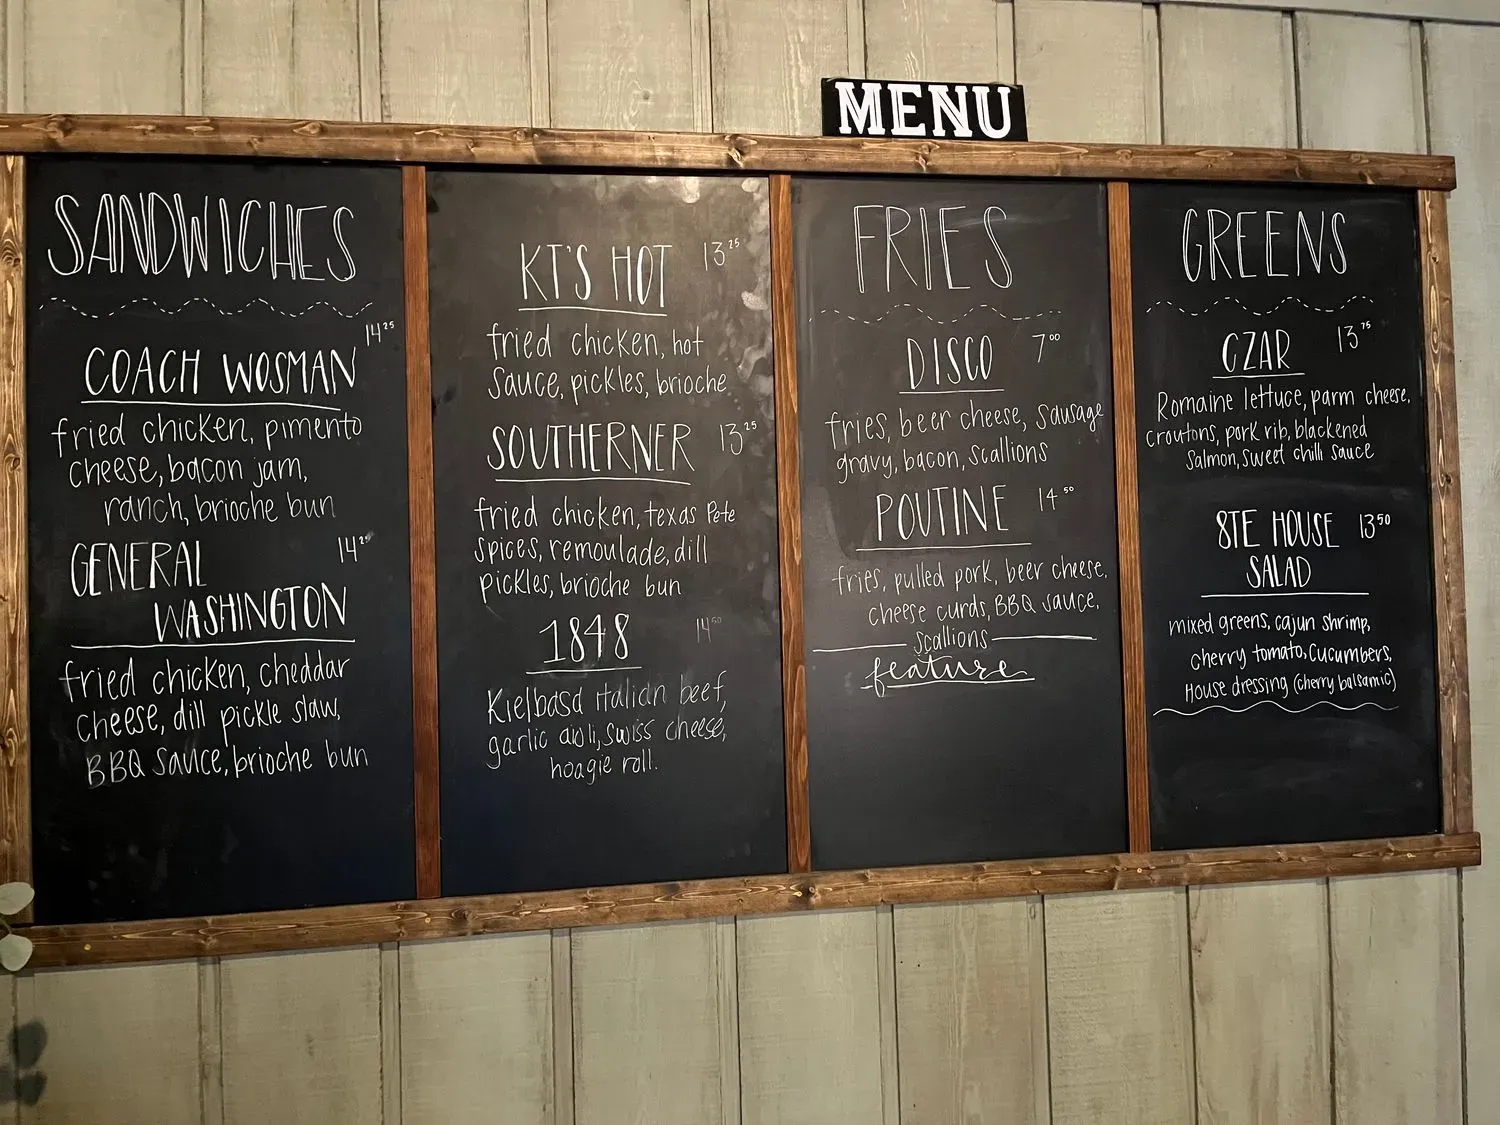 MENU
SANDWICHES
COACH WOSMAN 14 25
fried chicken, pimento
cheese, bacon jam,
ranch, brioche bun
GENERAL 14 25
WASHINGTON
fried chicken, cheddar
cheese, dill pickle slaw,
BBQ sauce, brioche bun
KT'S HOT 13 25
fried chicken, hot
sauce, pickles, brioche
SOUTHERNER 13 25
fried chicken, texas Pete
spices, remoulade, dill
pickles, brioche bun
1848 14 50
Kielbasa italian beef,
garlic aioli, swiss cheese,
hoagie roll.
FRIES
DISCO 7 00
fries, beer cheese, sausage
gravy, bacon, scallions
POUTINE 14 50
fries, pulled pork, beer cheese,
cheese curds, BBQ sauce,
scallions
feature
GREENS
CZAR 13 75
Romaine lettuce, parm cheese,
croutons, pork rib, blackened
Salmon, sweet chilli sauce
8TE HOUSE 13 50
SALAD
mixed greens, cajun shrimp,
cherry tomato, cucumbers,
House dressing (cherry balsamic)